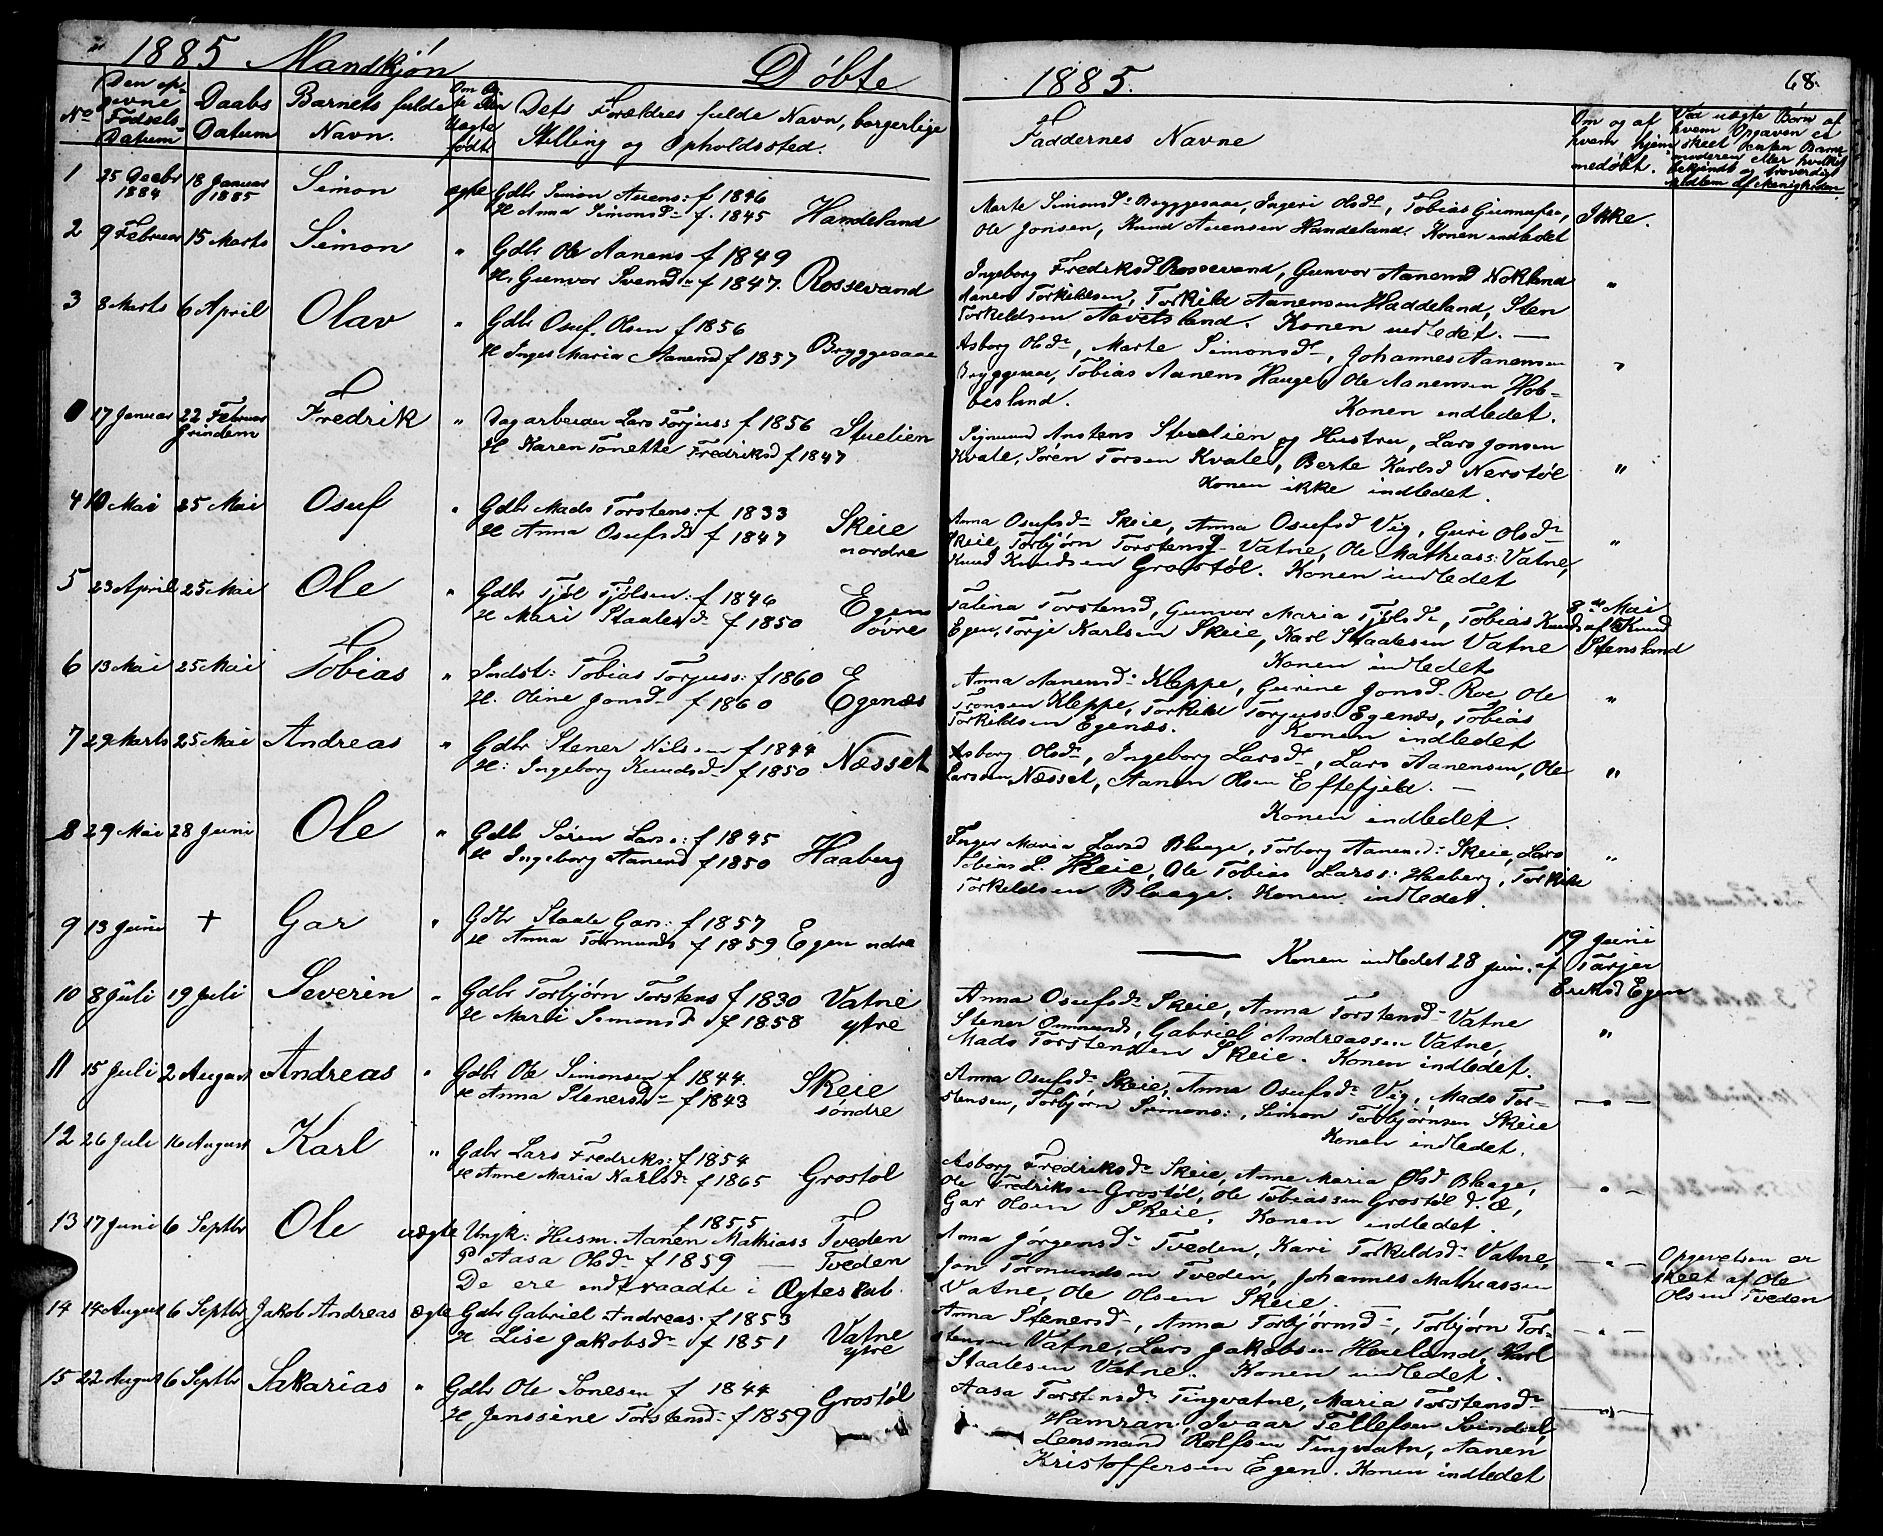 1885 Mandkjón Döbte
No
Den opgivne Fødsels Datum
Daabs Datum
Barnets fulde Navn.
Dets Forældres fulde Navn, borgerlige
Stilling og Opholdssted.
1 25 Decbr 1884 18 Januar 1885 Simon ægte Gdbr Simon Anens: f 1846
H Anna Simonsd f. 1845 Handeland
2 9 Februar 15 Marts Simon " Gdbr Ole Aanens f 1849
H. Gunvor Svensd f 1847. Rossevand
3 8 Marts 6 April Olav " Gdbr Osuf. Olsen f 1856
H Inger Maria Aanensd f 1857 Bryggesaae
17 Januar 22 Februar Grindem Fredrik " Dagarbeider Lars Torjuss f 1856
H Karen Tonette Fredriksd f 1847 Stuelien
4 10 Mai 25 Mai Osuf " Gdbr Mads Torstens: f 1833
H Anna Osufsd f 1847 Skeie nordre
5 23 April 25 Mai Ole " Gdbr Tjøl Tjølsen: f 1846
H Mari Staalesd f 1850 Egen øvre
6 13 Mai 25 Mai Tobias " Indst: Tobias Torjuss: f 1860
H. Oline Jonsd f 1860 Egenæs
7 29 Marts 25 Mai Andreas " Gdbr Stener Nilsen f 1844
H: Ingeborg Knudsd f 1850 Næsset
8 29 Mai 28 Juni Ole " Gdbr Søren Lars: f 1845
H Ingeborg Aanensd f 1850 Haaberg
9 13 Juni + Gar " Gdbr Staale Gars: f 1857
H Anna Tormunds f 1859 Egen ndre
10 8 Juli 19 Juli Severin " Gdbr Torbjørn Torstens f 1830
H Mari Simonsd f 1858 Vatne ytre
11 15 Juli 2 August Andreas " Gdbr Ole Simonsen f 1844.
H Anna Stenersd f 1843 Skeie søndre
12 26 Juli 16 August Karl " Gdbr Lars Fredriks: f 1854
H Anne Maria Karlsd f 1865 Grostøl
13 17 Juni 6 Septbr Ole uægte Ungk: Husm. Aanen Mathiass f 1855 Tveden
P Aasa Olsd f 1859 — Tveden
De ere indtraadte i Ægteskab.
14 14 August 6 Septbr Jakob Andreas ægte Gdbr Gabriel Andreas: f 1853
H Lise Jakobsd f 1851 Vatne ytre
15 22 August 6 Septbr Sakarias " Gdbr Ole Sonesen f 1844
H Jenssine Torstensd f 1859 Grostøl
1885. 68.
Faddernes Navne
Om og af hvem hjemmedøbt.
Ved uægte Børn af hvem Opgaven er skeet
Marte Simonsd Bryggesaae, Ingeri Olsd,
Ole Jonsen, Knud Anensen Handeland. Konen indledet Ikke.
Ingeborg Fredriksd Rossevand, Gunvor Aanensd Nokland
Aanen Torkildsen, Torkild Aanensen Haddeland, Sten
Torkeldsen Aavetsland. Konen indledet. — "
Asborg Olsd, Marte Simonsd, Johannes Aanensen
Bryggesaae, Tobias Aanens Hauge, Ole Aanensen Hobbesland.
Konen indledet.
Sigmund Anstens Stuelien og Hustru, Lars Jonsen
Kvale, Søren Torsen Kvale, Berte Karlsd Nerstøl "
Konen ikke indledet.
Anna Osufsd Skeie, Anna Osufsd Vig, Guri Olsd
Skeie, Torbjørn Torstens Vatne, Ole Mathiass: Vatne, "
Knud Knudsen Grostøl. Konen indledet
Talina Torstensd, Gunvor Maria Tjølsd, Tobias Knuds
Egen, Torje Karlsen Skeie, Karl Staalesen Vatne
Konen indledet
8de Mai af Knud Stensland
Anna Aanensd Kleppe, Gurine Jonsd Roe, Ole
Tronsen Kleppe, Torkild Torjuss: Egenæs, Tobias "
Torkeldsen Egenæs. Konen indledet
Asborg Olsd, Ingeborg Larsd, Lars Aanensen, Ole
Larsen Næsset, Aanen Olsen Eftefjeld. — "
Konen indledet.
Inger Maria Larsd Blaage, Torborg Aanensd Skeie, Lars
Tobias L. Skeie, Ole Tobias Larss: Haaberg, Torkild "
Torkeldsen Blaage. Konen indledet.
— Konen indledet 28 Juni.
19 Juni af Tarjer Eriksd Egen
Anna Osufsd Skeie, Anna Torstensd Vatne
Stener Ommunds, Gabriel Andreassen Vatne, "
Mads Torstensen Skeie. Konen indledet.
Anna Osufsd Skeie, Anna Osufsd Vig, Mads Torstensen,
Torbjørn Simons:, Simon Torbjørnsen Skeie — " —
Konen indledet.
Asborg Fredriksd Skeie, Anne Maria Olsd Blaage,
Ole Fredriksen Grostøl, Ole Tobiassen Grostøl d. æ, — " —
Gar Olsen Skeie. Konen indledet.
Anna Jørgensd Tveden, Kari Torkeldsd Vatne,
Jon Tormundsen Tveden, Johannes Mathiassen — " —
Vatne, Ole Olsen Skeie.
Opgivelsen er skeet af Ole Olsen Tveden
Anna Stenersd, Anna Torbjørnsd, Torbjørn Torstensen
Vatne, Lars Jakobsen Heieland, Karl — " —
Staalesen Vatne. Konen indledet.
Aasa Torstensd Tingvatne, Maria Torstensd
Hamran, Ivaar Tellefsen Svindsel, — " —
Lensmand Rolfsen Tingvatn, Aanen
Kristoffersen Egen. Konen indledet